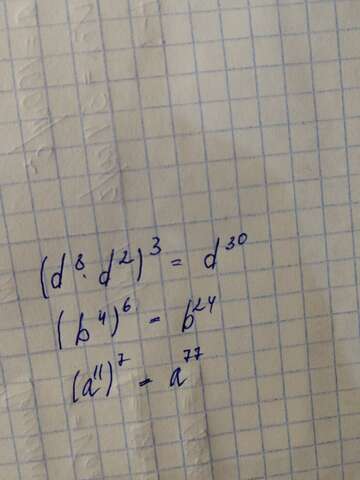 (d⁸ · d²)³ = d³⁰
(b⁴)⁶ = b²⁴
(a¹¹)⁷ = a⁷⁷